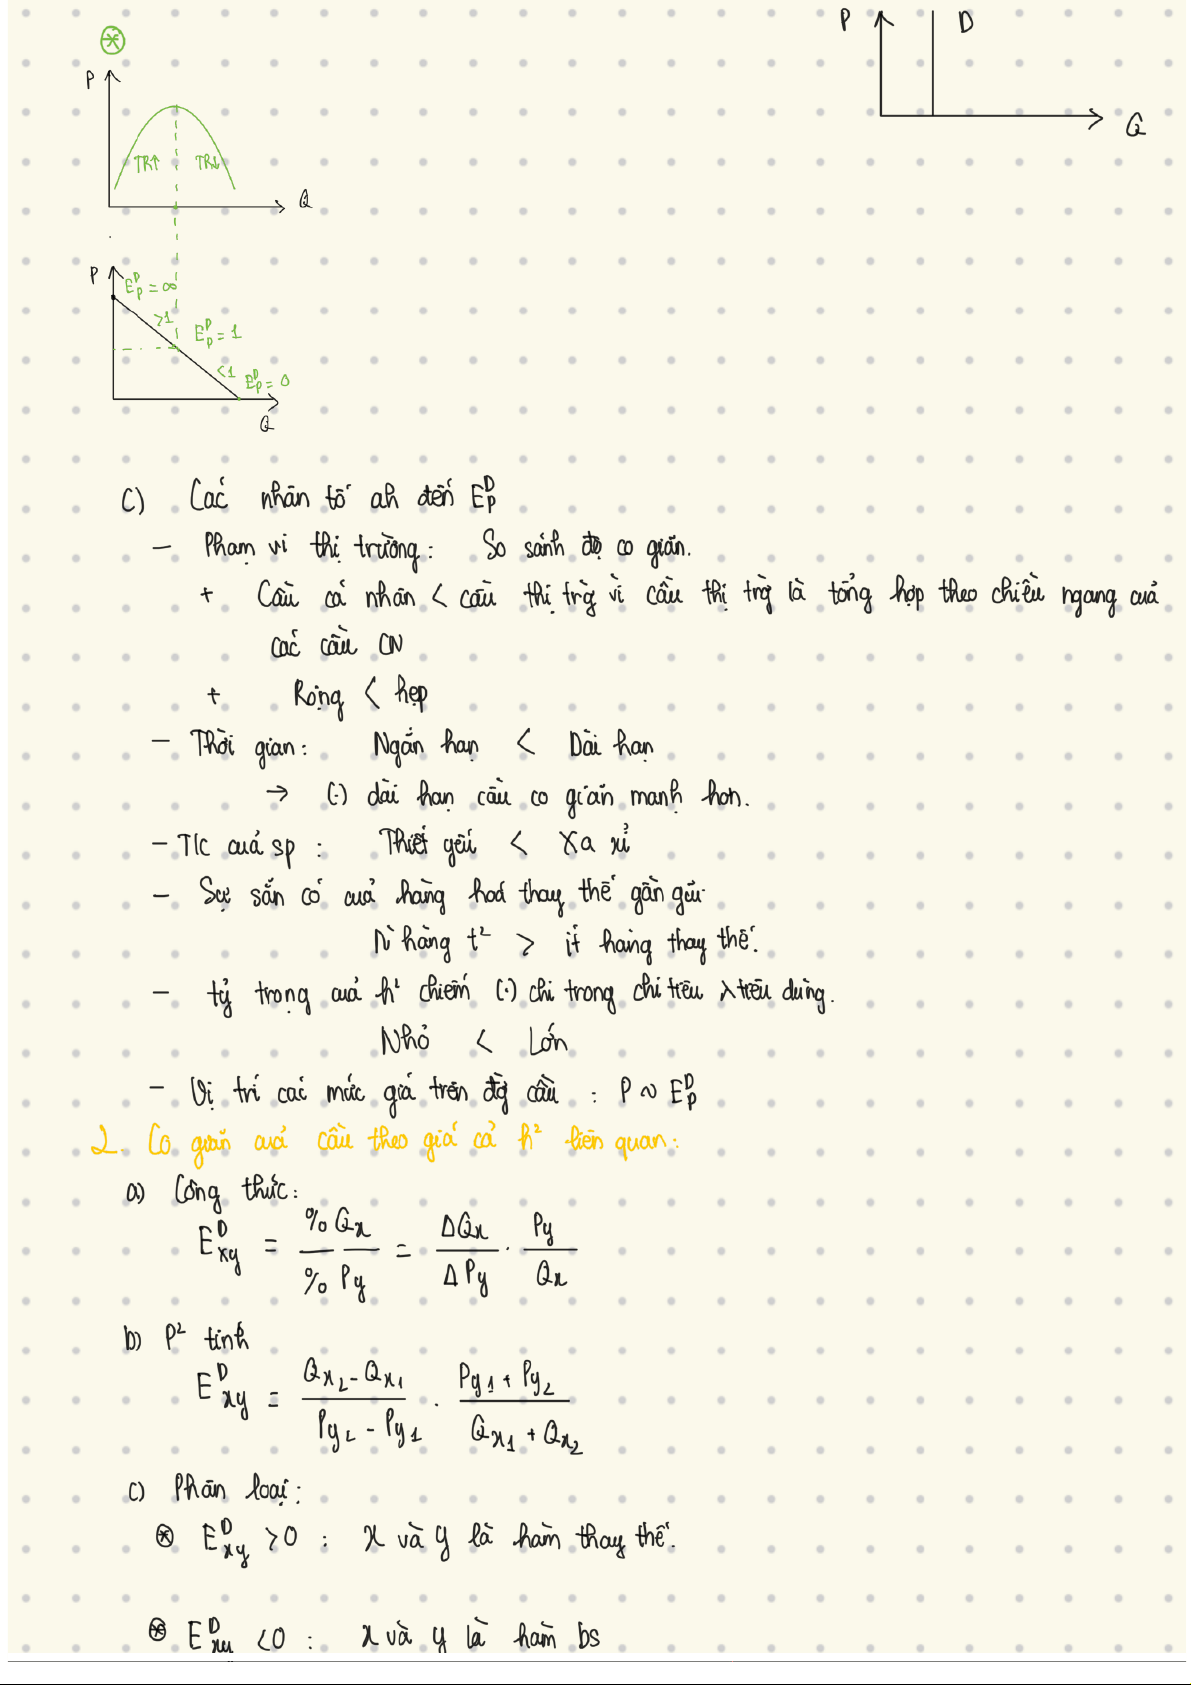 P D
Q
P
TR↑ TR↓
Q
P
E_P^D = ∞
>1
E_P^D = 1
<1
E_P^D = 0
Q
c) Các nhân tố ah đến E_P^D
- Phạm vi thị trường: So sánh độ co giãn.
+ Cầu cá nhân < cầu thị trg vì cầu thị trg là tổng hợp theo chiều ngang của
các cầu CN
+ Rộng < hẹp
- Thời gian: Ngắn hạn < Dài hạn
→ (.) dài hạn cầu co giãn mạnh hơn.
- T/c của sp: Thiết yếu < Xa xỉ
- Sự sẵn có của hàng hoá thay thế gần gũi
N` hàng t² > ít hàng thay thế.
- tỷ trọng của h² chiếm (.) chi trong chi tiêu λ tiêu dùng.
Nhỏ < Lớn
- Vị trí các mức giá trên đg cầu: P ~ E_P^D
2. Co giãn của cầu theo giá cả h² liên quan:
a) Công thức:
E_xy^D = %Qx / %Py = ΔQx / ΔPy . Py / Qx
b) P² tính
E_xy^D = (Qx2 - Qx1) / (Py2 - Py1) . (Py1 + Py2) / (Qx1 + Qx2)
c) Phân loại:
⊛ E_xy^D > 0 : x và y là hàm thay thế.
⊛ E_xy^D < 0 : x và y là hàm bs